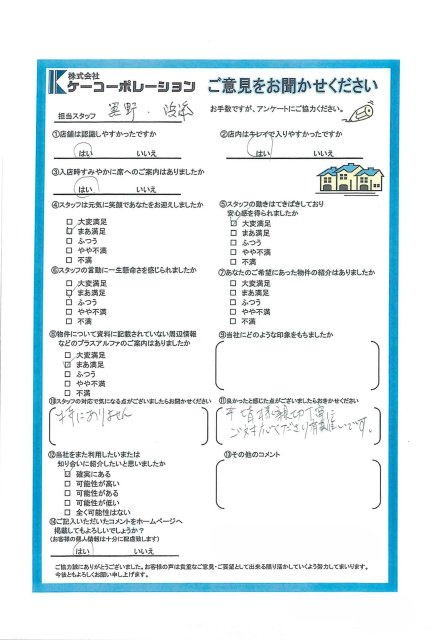 株式会社
ケーコーポレーション ご意見をお聞かせください
担当スタッフ 星野 ・
お手数ですが、アンケートにご協力ください。
①店舗は認識しやすかったですか
はい いいえ
②店内はキレイで入りやすかったですか
はい いいえ
③入店時すみやかに席へのご案内はありましたか
はい いいえ
④スタッフは元気に笑顔であなたをお迎えしましたか
□ 大変満足
☑ まあ満足
□ ふつう
□ やや不満
□ 不満
⑤スタッフの動きはてきぱきしており
安心感を得られましたか
☑ 大変満足
□ まあ満足
□ ふつう
□ やや不満
□ 不満
⑥スタッフの言動に一生懸命さを感じられましたか
□ 大変満足
☑ まあ満足
□ ふつう
□ やや不満
□ 不満
⑦あなたのご希望にあった物件の紹介はありましたか
□ 大変満足
□ まあ満足
□ ふつう
□ やや不満
□ 不満
⑧物件について資料に記載されていない周辺情報
などのプラスアルファのご案内はありましたか
□ 大変満足
☑ まあ満足
□ ふつう
□ やや不満
□ 不満
⑨当社にどのような印象をもちましたか
⑩スタッフの対応で気になる点がございましたらお聞かせください
特にありません
⑪良かったと感じた点がございましたらおきかせください
親切丁寧に
ご対応くださり有難いです。
⑫当社をまた利用したいまたは
知り合いに紹介したいと思いましたか
☑ 確実にある
□ 可能性が高い
□ 可能性がある
□ 可能性が低い
□ 全く可能性はない
⑬その他のコメント
⑭ご記入いただいたコメントをホームページへ
掲載してもよろしいでしょうか？
(お客様の個人情報は十分に配慮致します)
はい いいえ
ご協力誠にありがとうございました。お客様の声は貴重なご意見・ご要望として出来る限り活かしていくよう努力してまいります。
今後ともよろしくお願い申し上げます。